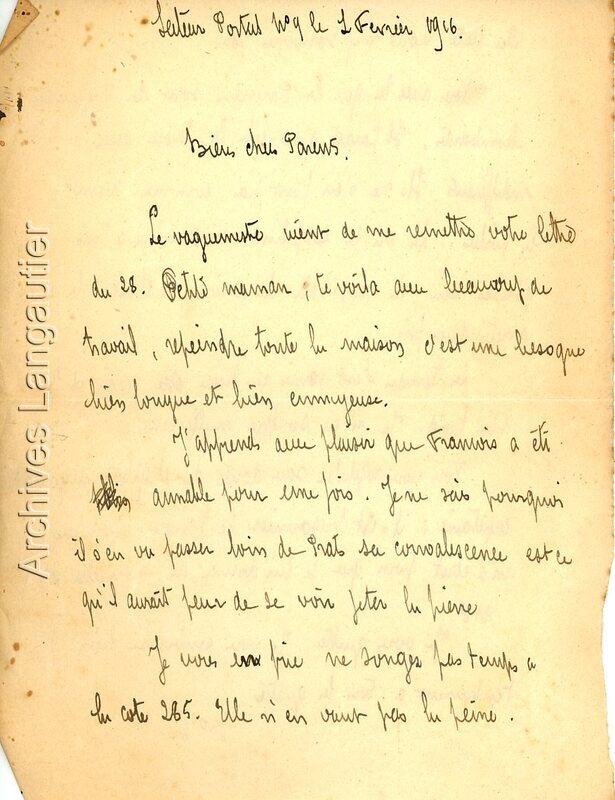 Secteur Postal N°9 le 1 Fevrier 1916.
Biens chers Parents.
Le vaguemestre vient de me remettre votre lettre
du 28. Petite maman, te voila avec beaucoup de
travail, repeindre toute la maison c'est une besogne
bien longue et bien ennuyeuse.
J'apprends avec plaisir que Francois a été
aimable pour une fois. Je ne sais pourquoi
il s'en va passer loin de Prats sa convalescence est ce
qu'il aurait peur de se voir jeter la pierre
Je vous en prie ne songes pas temps a
la cote 265. Elle n'en vaut pas la peine.
Archives Langautier